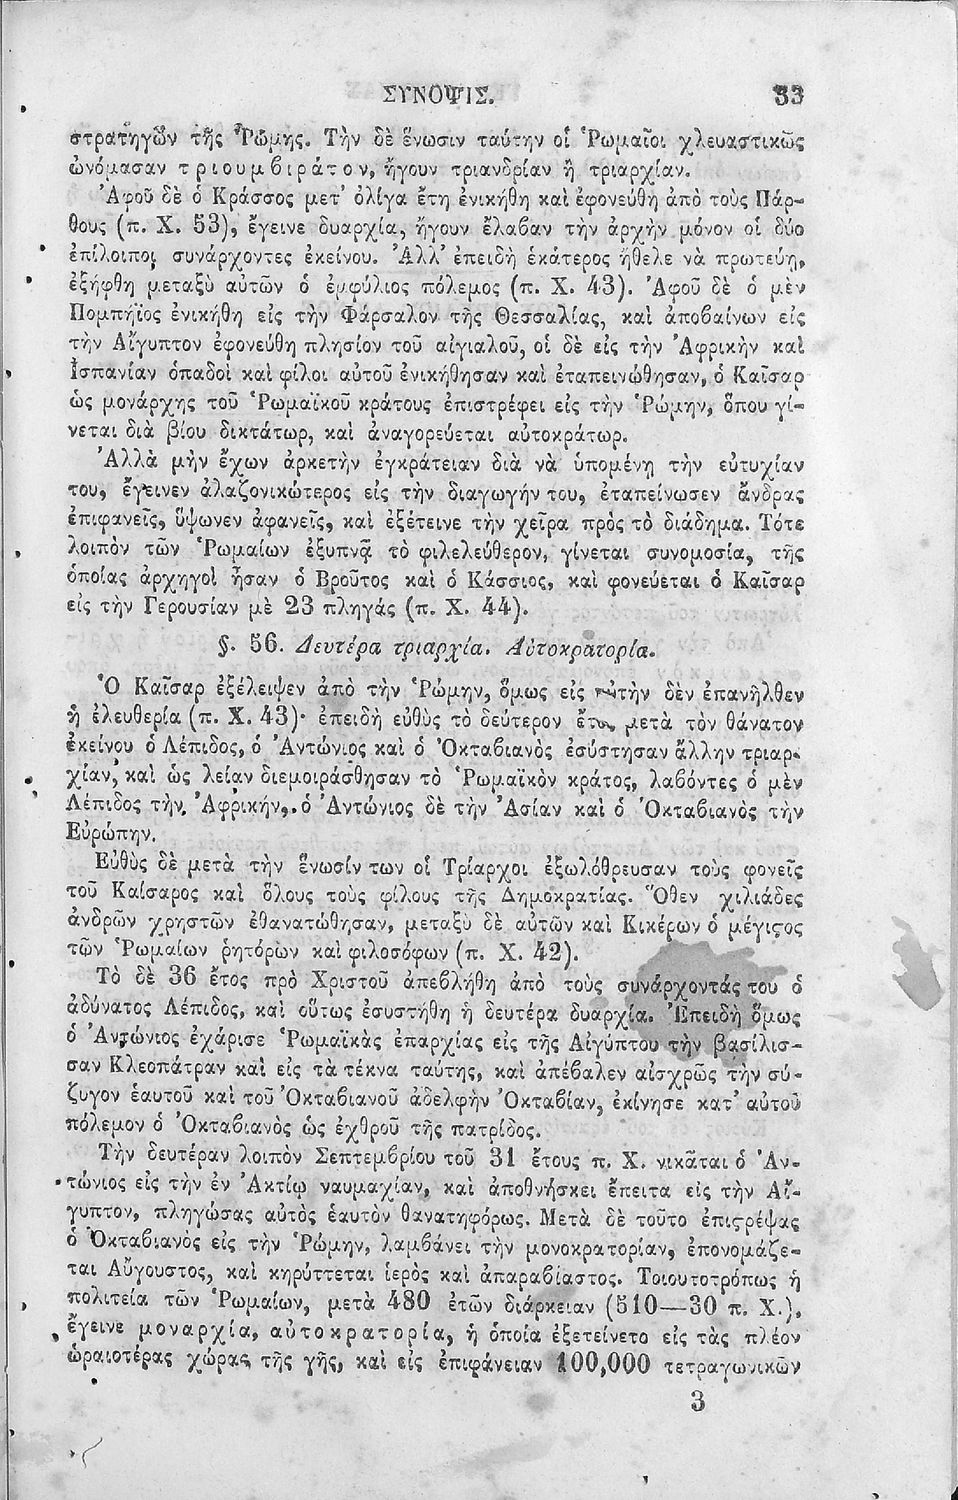 ΣΥΝΟΨΙΣ. 33
στρατηγῶν τῆς Ῥώμης. Τὴν δὲ ἕνωσιν ταύτην οἱ Ῥωμαῖοι χλευαστικῶς
ὠνόμασαν τριουμβιράτον, ἤγουν τριανδρίαν ἢ τριαρχίαν.
Ἀφοῦ δὲ ὁ Κράσσος μετ' ὀλίγα ἔτη ἐνικήθη καὶ ἐφονεύθη ἀπὸ τοὺς Πάρ-
θους (π. Χ. 53), ἔγεινε δυαρχία, ἤγουν ἔλαβαν τὴν ἀρχὴν μόνον οἱ δύο
ἐπίλοιποι συνάρχοντες ἐκείνου. Ἀλλ' ἐπειδὴ ἑκάτερος ἤθελε νὰ πρωτεύῃ,
ἐξήφθη μεταξὺ αὐτῶν ὁ ἐμφύλιος πόλεμος (π. Χ. 43). Ἀφοῦ δὲ ὁ μὲν
Πομπήϊος ἐνικήθη εἰς τὴν Φάρσαλον τῆς Θεσσαλίας, καὶ ἀποβαίνων εἰς
τὴν Αἴγυπτον ἐφονεύθη πλησίον τοῦ αἰγιαλοῦ, οἱ δὲ εἰς τὴν Ἀφρικὴν καὶ
Ἱσπανίαν ὀπαδοὶ καὶ φίλοι αὐτοῦ ἐνικήθησαν καὶ ἐταπεινώθησαν, ὁ Καῖσαρ
ὡς μονάρχης τοῦ Ῥωμαϊκοῦ κράτους ἐπιστρέφει εἰς τὴν Ῥώμην, ὅπου γί-
νεται διὰ βίου δικτάτωρ, καὶ ἀναγορεύεται αὐτοκράτωρ.
Ἀλλὰ μὴν ἔχων ἀρκετὴν ἐγκράτειαν διὰ νὰ ὑπομένῃ τὴν εὐτυχίαν
του, ἔγεινεν ἀλαζονικώτερος εἰς τὴν διαγωγήν του, ἐταπείνωσεν ἄνδρας
ἐπιφανεῖς, ὕψωνεν ἀφανεῖς, καὶ ἐξέτεινε τὴν χεῖρα πρὸς τὸ διάδημα. Τότε
λοιπὸν τῶν Ῥωμαίων ἐξυπνᾷ τὸ φιλελεύθερον, γίνεται συνομοσία, τῆς
ὁποίας ἀρχηγοὶ ἦσαν ὁ Βροῦτος καὶ ὁ Κάσσιος, καὶ φονεύεται ὁ Καῖσαρ
εἰς τὴν Γερουσίαν μὲ 23 πληγάς (π. Χ. 44).
§. 56. Δευτέρα τριαρχία. Αὐτοκρατορία.
Ὁ Καῖσαρ ἐξέλειψεν ἀπὸ τὴν Ῥώμην, ὅμως εἰς αὐτὴν δὲν ἐπανῆλθεν
ἡ ἐλευθερία (π. Χ. 43)· ἐπειδὴ εὐθὺς τὸ δεύτερον ἔτος μετὰ τὸν θάνατον
ἐκείνου ὁ Λέπιδος, ὁ Ἀντώνιος καὶ ὁ Ὀκταβιανὸς ἐσύστησαν ἄλλην τριαρ-
χίαν, καὶ ὡς λείαν διεμοιράσθησαν τὸ Ῥωμαϊκὸν κράτος, λαβόντες ὁ μὲν
Λέπιδος τὴν Ἀφρικήν, ὁ Ἀντώνιος δὲ τὴν Ἀσίαν καὶ ὁ Ὀκταβιανὸς τὴν
Εὐρώπην.
Εὐθὺς δὲ μετὰ τὴν ἕνωσίν των οἱ Τρίαρχοι ἐξωλόθρευσαν τοὺς φονεῖς
τοῦ Καίσαρος καὶ ὅλους τοὺς φίλους τῆς Δημοκρατίας. Ὅθεν χιλιάδες
ἀνδρῶν χρηστῶν ἐθανατώθησαν, μεταξὺ δὲ αὐτῶν καὶ Κικέρων ὁ μέγιϛος
τῶν Ῥωμαίων ῥητόρων καὶ φιλοσόφων (π. Χ. 42).
Τὸ δὲ 36 ἔτος πρὸ Χριστοῦ ἀπεβλήθη ἀπὸ τοὺς συνάρχοντάς του ὁ
ἀδύνατος Λέπιδος, καὶ οὕτως ἐσυστήθη ἡ δευτέρα δυαρχία. Ἐπειδὴ ὅμως
ὁ Ἀντώνιος ἐχάρισε Ῥωμαϊκὰς ἐπαρχίας εἰς τῆς Αἰγύπτου τὴν βασίλισ-
σαν Κλεοπάτραν καὶ εἰς τὰ τέκνα ταύτης, καὶ ἀπέβαλεν αἰσχρῶς τὴν σύ-
ζυγον ἑαυτοῦ καὶ τοῦ Ὀκταβιανοῦ ἀδελφὴν Ὀκταβίαν, ἐκίνησε κατ' αὐτοῦ
πόλεμον ὁ Ὀκταβιανὸς ὡς ἐχθροῦ τῆς πατρίδος.
Τὴν δευτέραν λοιπὸν Σεπτεμβρίου τοῦ 31 ἔτους π. Χ. νικᾶται ὁ Ἀν-
τώνιος εἰς τὴν ἐν Ἀκτίῳ ναυμαχίαν, καὶ ἀποθνήσκει ἔπειτα εἰς τὴν Αἴ-
γυπτον, πληγώσας αὐτὸς ἑαυτὸν θανατηφόρως. Μετὰ δὲ τοῦτο ἐπιϛρέψας
ὁ Ὀκταβιανὸς εἰς τὴν Ῥώμην, λαμβάνει τὴν μονοκρατορίαν, ἐπονομάζε-
ται Αὔγουστος, καὶ κηρύττεται ἱερὸς καὶ ἀπαραβίαστος. Τοιουτοτρόπως ἡ
πολιτεία τῶν Ῥωμαίων, μετὰ 480 ἐτῶν διάρκειαν (510—30 π. Χ.),
ἔγεινε μοναρχία, αὐτοκρατορία, ἡ ὁποία ἐξετείνετο εἰς τὰς πλέον
ὡραιοτέρας χώρας τῆς γῆς, καὶ εἰς ἐπιφάνειαν 100,000 τετραγωνικῶν
3